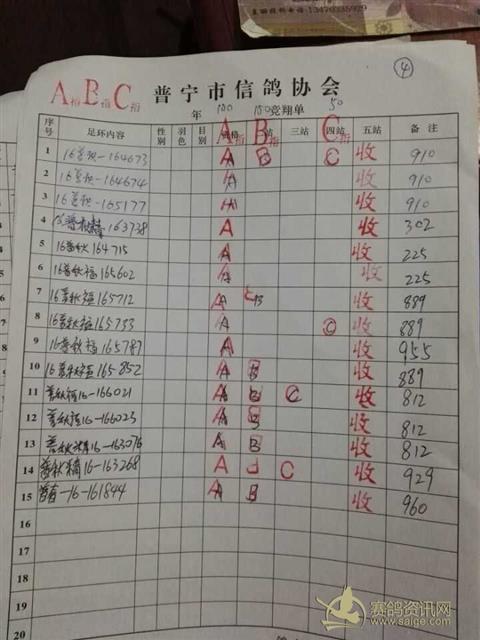 ④
A指 B指 C指 普宁市信鸽协会
年 100 100竞翔单 50
序号 足环内容 性别 羽色 目别 A指 B指 三站 C指 五站 备注
1 16普秋-164673 A B C 收 910
2 16普秋-164674 A 收 910
3 16普秋-165177 A 收 910
4 163738 A 收 302
5 16普秋164715 A 收 225
6 16普秋福165602 A 收 225
7 16普秋福165712 A B 收 889
8 16普秋福165733 A C 收 889
9 16普秋福165787 A 收 955
10 16普秋福165852 A B 收 889
11 普秋福16-166021 A B C 收 812
12 普秋福16-166023 A B 收 812
13 普秋精16-163076 A B 收 812
14 普秋精16-163268 A C 收 929
15 -16-161844 A B 收 960
16
17
18
19
20
赛鸽资讯网
www.saige.com